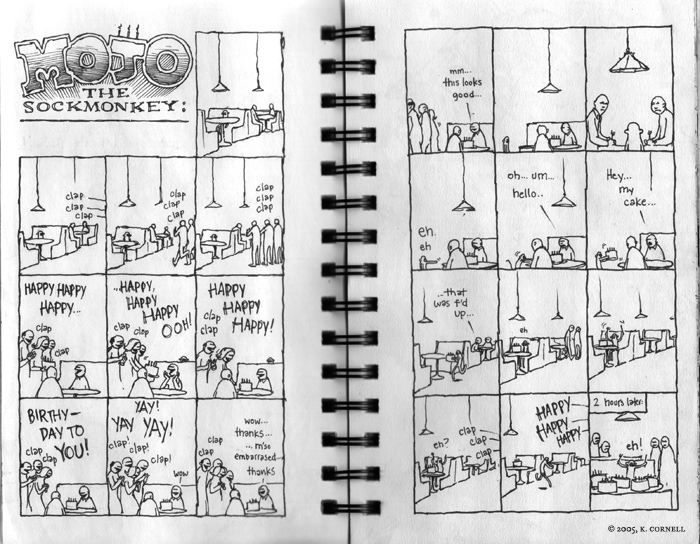 MOJO
THE
SOCKMONKEY:
clap
clap
clap
clap
clap
clap
clap
clap
clap
HAPPY HAPPY
HAPPY...
clap
clap
..HAPPY,
HAPPY
HAPPY
OOH!
clap
clap
HAPPY
HAPPY
HAPPY!
clap
clap
BIRTHY-
DAY TO
YOU!
clap
clap
YAY!
YAY YAY!
clap!
clap!
clap!
wow
wow...
thanks...
...m'so
embarrased...
thanks
clap
mm...
this looks
good...
eh.
eh
oh... um...
hello..
Hey...
my
cake...
...that
was f'd
up...
eh
eh?
clap
clap
clap
HAPPY
HAPPY
HAPPY
2 hours later:
eh!
© 2005, K. CORNELL